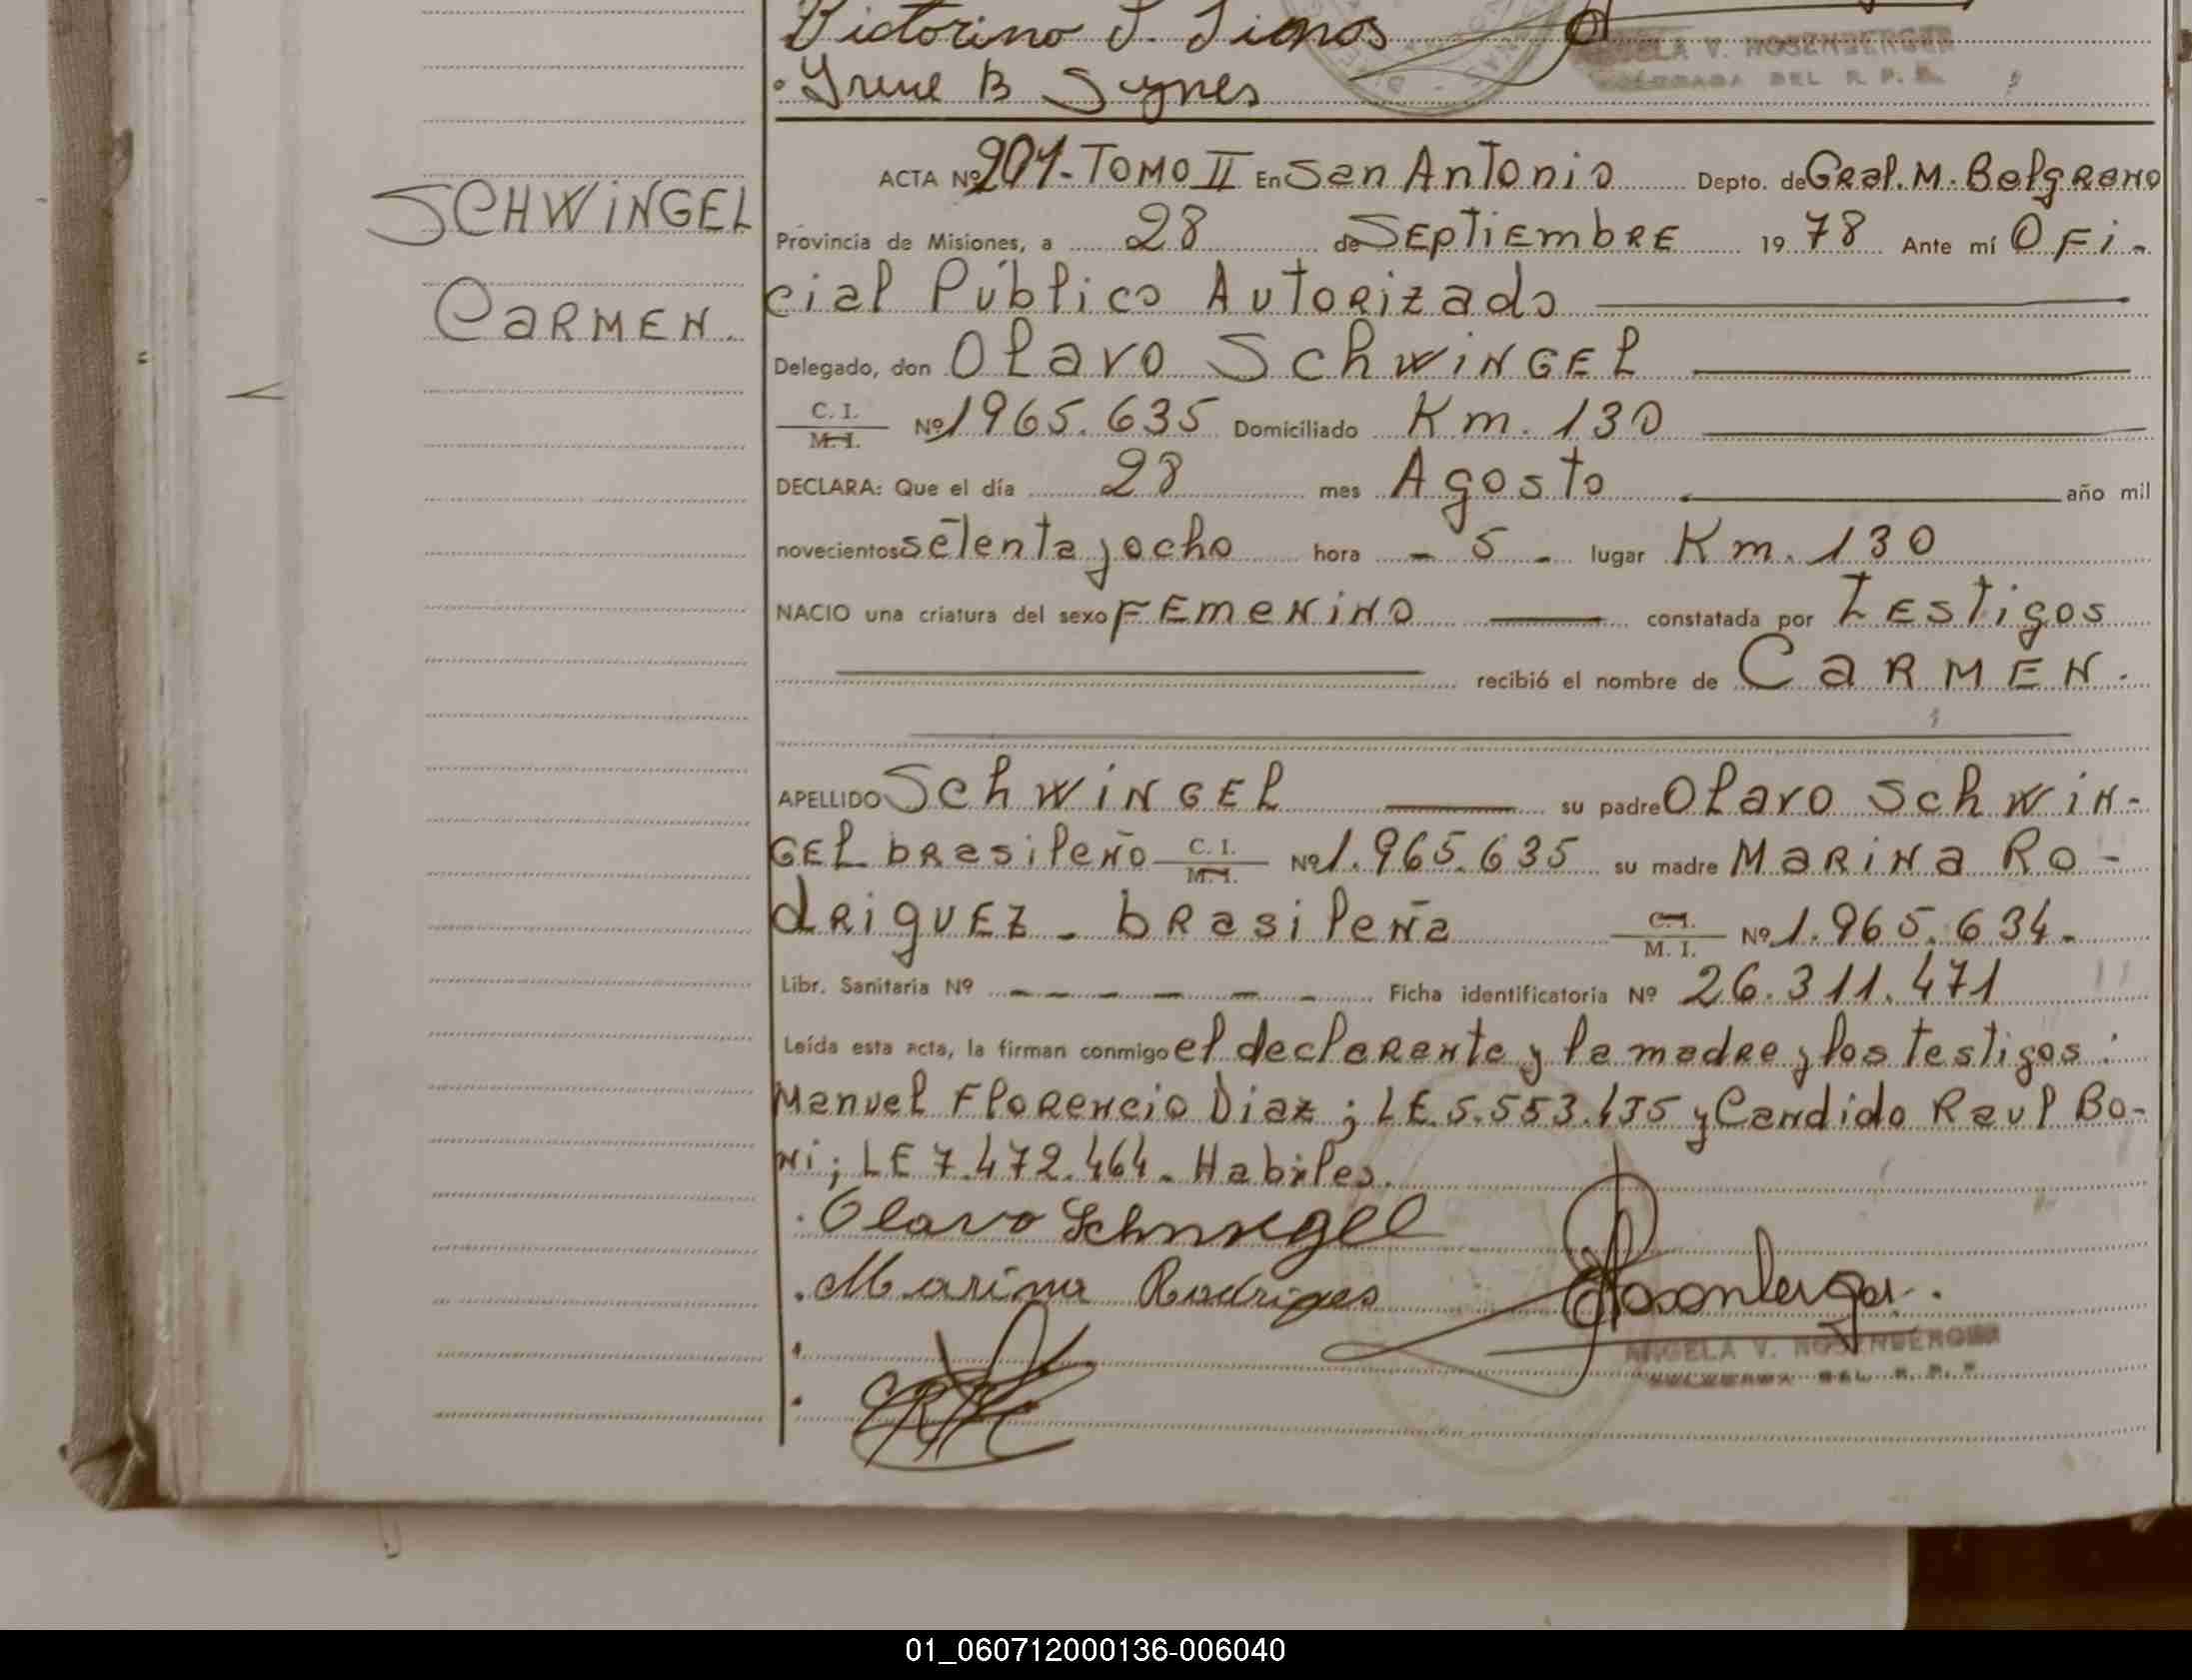 Victorino S. Simos
Irene B Synes
ANGELA V. ROSENBERGER
DEL R. P. P.
SCHWINGEL
CARMEN.
ACTA Nº 201.- TOMO II En San Antonio Depto. de Gral. M. Belgrano
Provincia de Misiones, a 28 de Septiembre 19 78 Ante mí Ofi-
cial Público Autorizado
Delegado, don Olavo Schwingel
C. I. / M. I. Nº 1965.635 Domiciliado Km. 130
DECLARA: Que el día 28 mes Agosto año mil
novecientos setenta y ocho hora - 5 - lugar Km. 130
NACIO una criatura del sexo Femenino constatada por Testigos
recibió el nombre de CARMEN.
APELLIDO Schwingel su padre Olavo Schwin-
gel brasileño C. I. / M. I. Nº 1.965.635 su madre Marina Ro-
driguez - brasileña C. I. / M. I. Nº 1.965.634.-
Libr. Sanitaria Nº - - - - - - Ficha identificatoria Nº 26.311.471
Leída esta acta, la firman conmigo el declarante y la madre y los testigos:
Manuel Florencio Diaz; LE. 5.553.435 y Candido Raul Bo-
ni; LE 7.472.464.- Habiles.
Olavo Schwingel
Marina Rodrigues
Rosenberger.
ANGELA V. ROSENBERGER
DEL R. P. P.
01_060712000136-006040